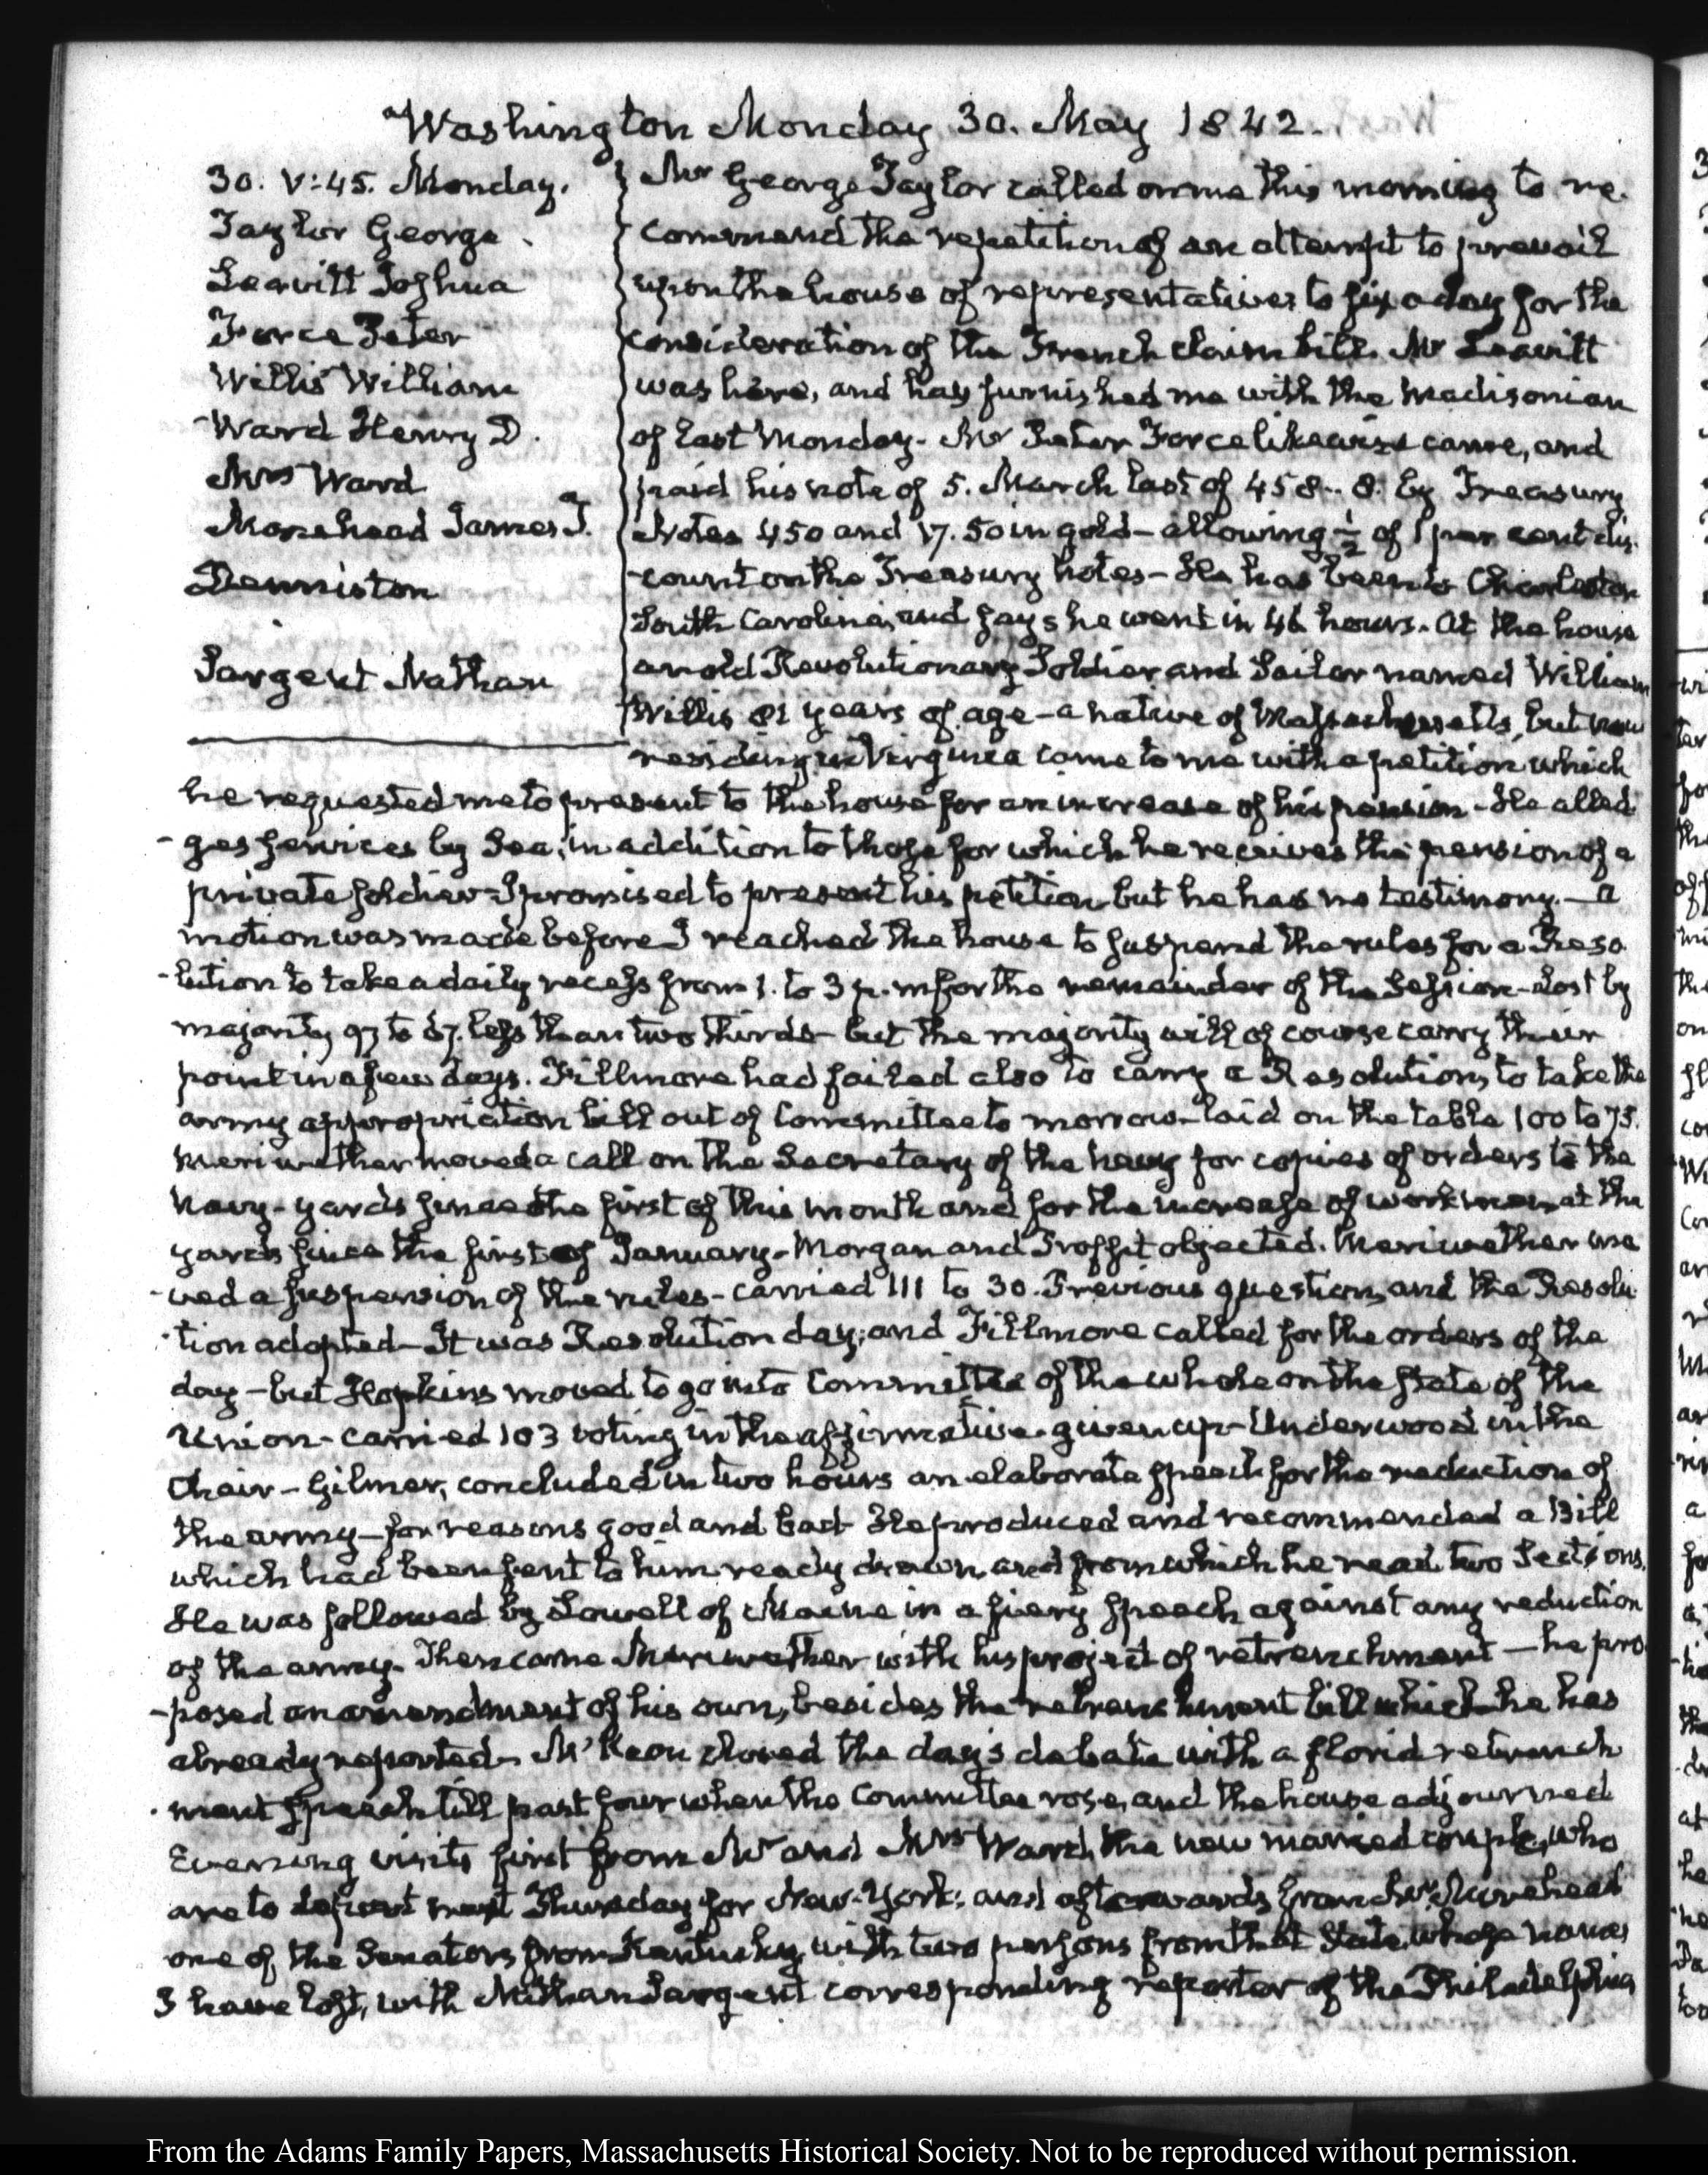 Washington Monday 30. May 1842.
30. V:45. Monday.
Taylor George.
Leavitt Joshua
Force Peter
Willis William
Ward Henry D.
Mrs Ward
Morehead James T.
Denniston
Sargent Nathan
Mr George Taylor called on me this morning to re-
commend the repetition of an attempt to prevail
upon the house of representatives to fix a day for the
consideration of the French claim bill. Mr Leavitt
was here, and has furnished me with the Madisonian
of last Monday. Mr Peter Force likewise came, and
paid his note of 5. March last of 458..8. by Treasury
Notes 450 and 17.50 in gold— allowing ½ of 1 per cent dis-
-count on the Treasury notes— He has been to Charleston
South Carolina, and says he went in 46 hours. At the house
an old Revolutionary Soldier and Sailor named William
Willis 81 years of age— a native of Massachusetts, but now
residing in Virginia came to me with a petition which
he requested me to present to the house for an increase of his pension— He alled
-ges services by Sea, in addition to those for which he receives the pension of a
private soldier— I promised to present his petition but he has no testimony.— A
motion was made before I reached the house to suspend the rules for a Reso
-lution to take a daily recess from 1. to 3 p.m for the remainder of the Session— lost by
majority 97 to 67. less than two thirds— but the majority will of course carry their
point in a few days. Fillmore had failed also to carry a Resolution, to take the
army appropriation bill out of Committee to morrow— laid on the table 100 to 75.
Meriwether moved a call on the Secretary of the Navy for copies of orders to the
Navy-yards since the first of this month and for the increase of workmen at the
yards since the first of January— Morgan and Proffit objected. Meriwether mo
-ved a suspension of the rules— carried 111 to 30. Previous question, and the Resolu
-tion adopted— It was Resolution day; and Fillmore called for the orders of the
day— but Hopkins moved to go into Committee of the whole on the state of the
Union— carried 103 voting in the affirmative. given up— Underwood in the
Chair— Gilmer, concluded in two hours an elaborate speech for the reduction of
the army— for reasons good and bad— He produced and recommended a Bill
which had been sent to him ready drawn, and from which he read two Sections.
He was followed by Lowell of Maine in a fiery speech against any reduction
of the army. Then came Meriwether with his project of retrenchment— he pro
-posed an amendment of his own, besides the retrenchment bill which he has
already reported. McKeon closed the day's debate with a florid retrench
-ment speech till past four when the Committee rose, and the house adjourned
Evening visits first from Mr and Mrs Ward, the new married couple, who
are to depart next Thursday for New-York; and afterwards from Mr Morehead
one of the Senators from Kentucky, with two persons from that State whose names
I have lost, with Nathan Sargent corresponding reporter of the Philadelphia
From the Adams Family Papers, Massachusetts Historical Society. Not to be reproduced without permission.